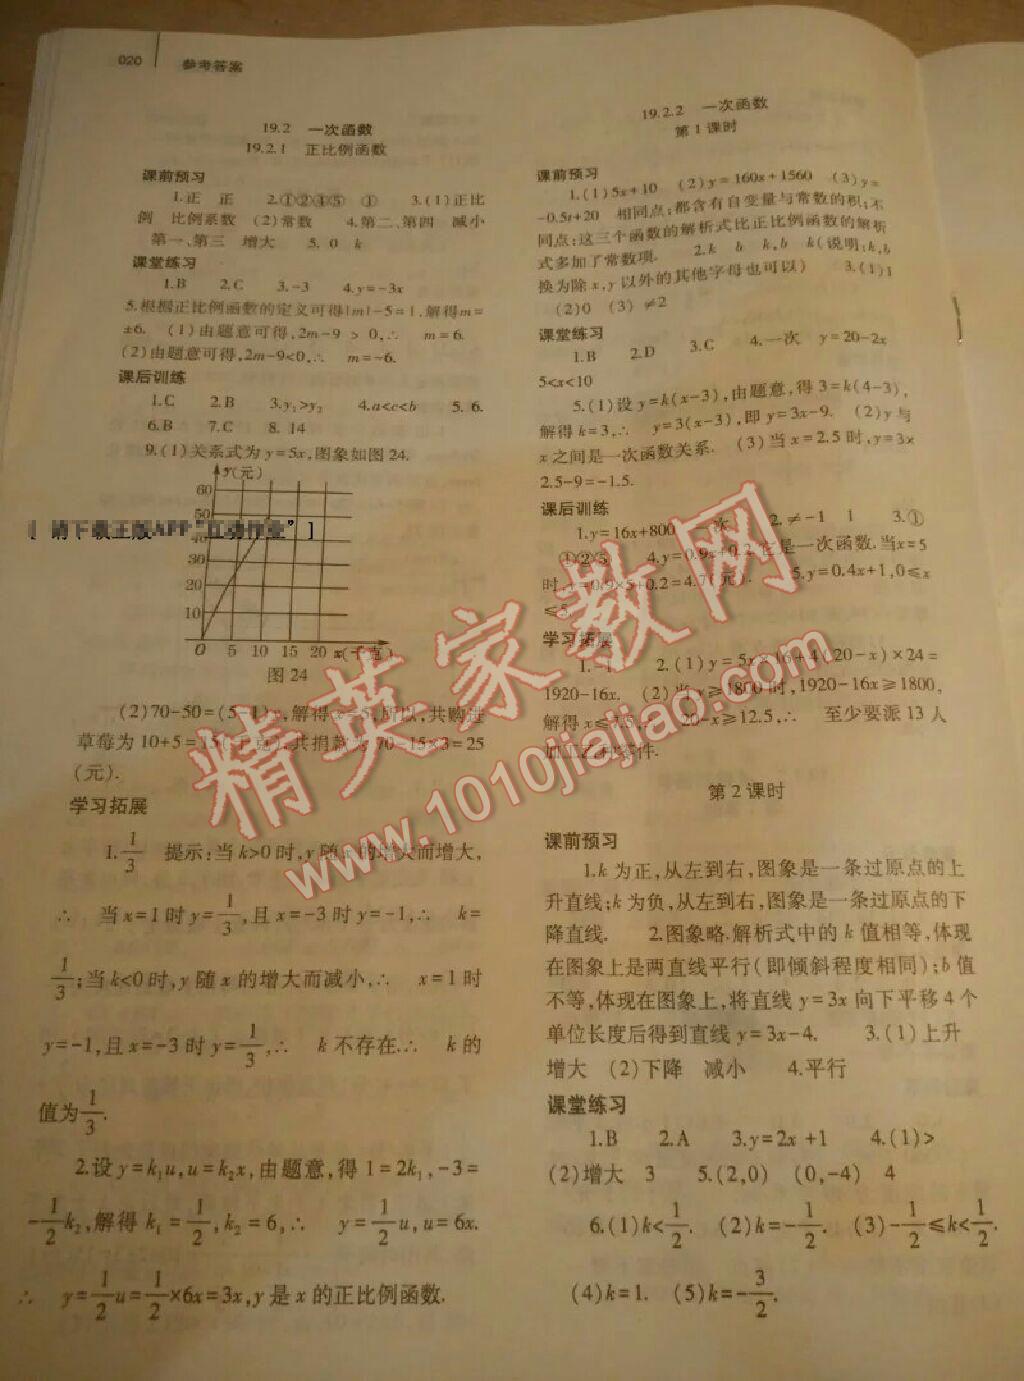 020 参考答案
19.2 一次函数
19.2.1 正比例函数
课前预习
1.正 正 2.①②④⑤ ① 3.(1)正比
例 比例系数 (2)常数 4.第二、第四 减小
第一、第三 增大 5.0 k
课堂练习
1.B 2.C 3.-3 4.y=-3x
5.根据正比例函数的定义可得|m|-5=1,解得m=
±6. (1)由题意可得,2m-9>0,∴ m=6.
(2)由题意可得,2m-9<0,∴ m=-6.
课后训练
1.C 2.B 3.y₁>y₂ 4.a<c<b 5.6.
6.B 7.C 8.14
9.(1)关系式为y=5x,图象如图24.
y(元)
60
50
40
30
20
10
O 5 10 15 20 x(千克)
图24
(2)70-50=(5-1)x,解得x=5,所以,共购进
草莓为10+5=15(千克).共捐款为70-15×3=25
(元).
学习拓展
1.1/3 提示:当k>0时,y随x的增大而增大,
∴ 当x=1时y=1/3,且x=-3时y=-1,∴ k=
1/3;当k<0时,y随x的增大而减小,∴ x=1时
y=-1,且x=-3时y=1/3,∴ k不存在.∴ k的
值为1/3.
2.设y=k₁u,u=k₂x,由题意,得1=2k₁,-3=
-1/2k₂,解得k₁=1/2,k₂=6,∴ y=1/2u,u=6x.
∴ y=1/2u=1/2×6x=3x,y是x的正比例函数.
19.2.2 一次函数
第1课时
课前预习
1.(1)5x+10 (2)y=160x+1560 (3)y=
-0.5t+20 相同点:都含有自变量与常数的积;不
同点:这三个函数的解析式比正比例函数的解析
式多加了常数项. 2.k b k,b k(说明:k,b
换为除x,y以外的其他字母也可以) 3.(1)1
(2)0 (3)≠2
课堂练习
1.B 2.D 3.C 4.一次 y=20-2x
5<x<10
5.(1)设y=k(x-3),由题意,得3=k(4-3),
解得k=3,∴ y=3(x-3),即y=3x-9. (2)y与
x之间是一次函数关系. (3)当x=2.5时,y=3×
2.5-9=-1.5.
课后训练
1.y=16x+800 一次 2.≠-1 1 3.①
①②⑤ 4.y=0.9x+0.2 它是一次函数.当x=5
时,y=0.9×5+0.2=4.7(元). 5.y=0.4x+1,0≤x
≤5
学习拓展
1.-1 2.(1)y=5x×16+4(20-x)×24=
1920-16x. (2)当y≥1800时,1920-16x≥1800,
解得x≤7.5,∴ 20-x≥12.5,∴ 至少要派13人
加工乙种零件.
第2课时
课前预习
1.k为正,从左到右,图象是一条过原点的上
升直线;k为负,从左到右,图象是一条过原点的下
降直线. 2.图象略.解析式中的k值相等,体现
在图象上是两直线平行(即倾斜程度相同);b值
不等,体现在图象上,将直线y=3x向下平移4个
单位长度后得到直线y=3x-4. 3.(1)上升
增大 (2)下降 减小 4.平行
课堂练习
1.B 2.A 3.y=2x+1 4.(1)>
(2)增大 3 5.(2,0) (0,-4) 4
6.(1)k<1/2. (2)k=-1/2. (3)-1/2≤k<1/2.
(4)k=1. (5)k=-3/2.
[ 请下载正版APP“互动作业” ]
精英家教网
www.1010jiajiao.com